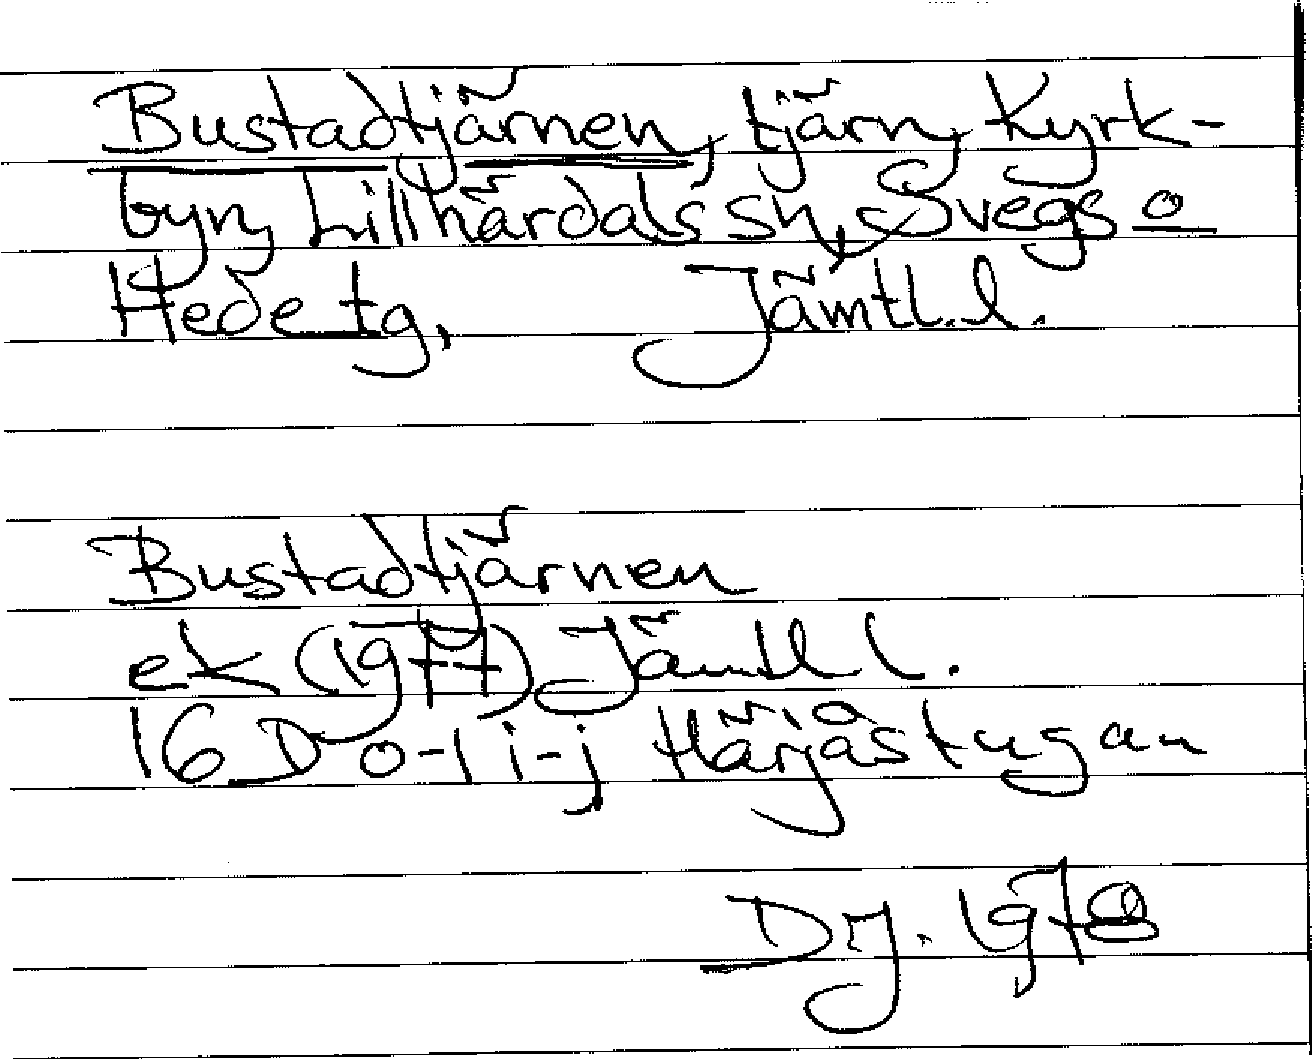 Bustadtjärnen, tjärn, Kyrk-
byn, Lillhärdals sn, Svegs o
Hede tg, Jämtl. l.
Bustadtjärnen
ek (1977) Jämtl l.
16D 0-1 i-j Härjåstugan
DJ. 1978